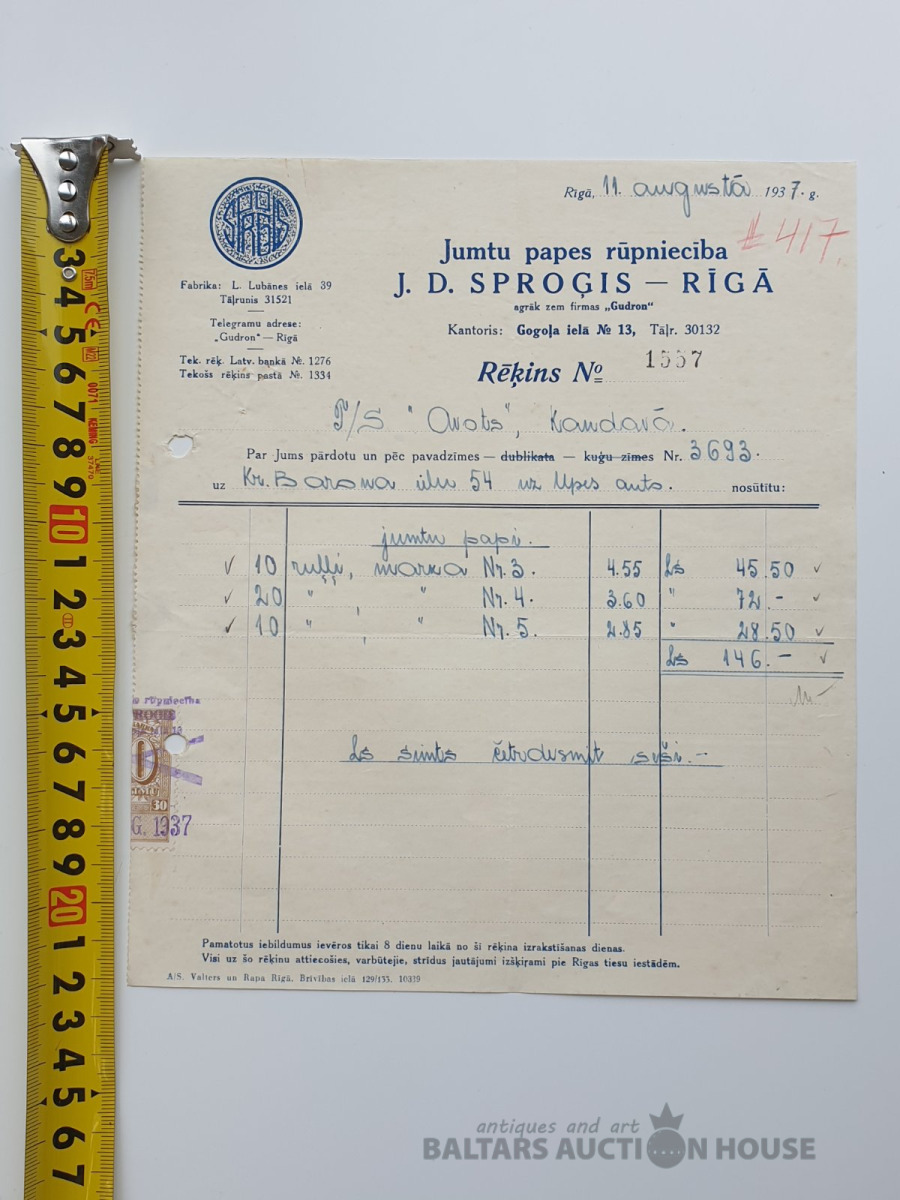 Rīgā, 11. augustā 1937. g.
# 417.
Jumtu papes rūpniecība
J. D. SPROĢIS — RĪGĀ
agrāk zem firmas „Gudron"
Kantoris: Gogoļa ielā № 13, Tāļr. 30132
Fabrika: L. Lubānes ielā 39
Tāļrunis 31521
Telegramu adrese:
„Gudron" — Rīgā
Tek. rēķ. Latv. bankā №. 1276
Tekošs rēķins pastā №. 1334
Rēķins № 1557
P/S "Avots", Kandavā.
Par Jums pārdotu un pēc pavadzīmes — dublikata — kuģu zīmes Nr. 3693.
uz Kr. Barona ielu 54 uz Upes auto. nosūtītu:
jumtu papi.
10 ruļļi, marka Nr. 3. 4.55 Ls 45.50
20 " , " Nr. 4. 3.60 " 72.-
10 " , " Nr. 5. 2.85 " 28.50
Ls 146.-
Ls simts četrdesmit seši.-
rūpniecība
30
G. 1937
Pamatotus iebildumus ievēros tikai 8 dienu laikā no šī rēķina izrakstīšanas dienas.
Visi uz šo rēķinu attiecošies, varbūtejie, strīdus jautājumi izšķirami pie Rīgas tiesu iestādēm.
A/S. Valters un Rapa Rīgā, Brīvības ielā 129/133. 10339
3 4 5 6 7 8 9 10 1 2 3 4 5 6 7 8 9 20 1 2 3 4 5 6 7
7.5m
CE
M20
0071
KENING
antiques and art
BALTARS AUCTION HOUSE